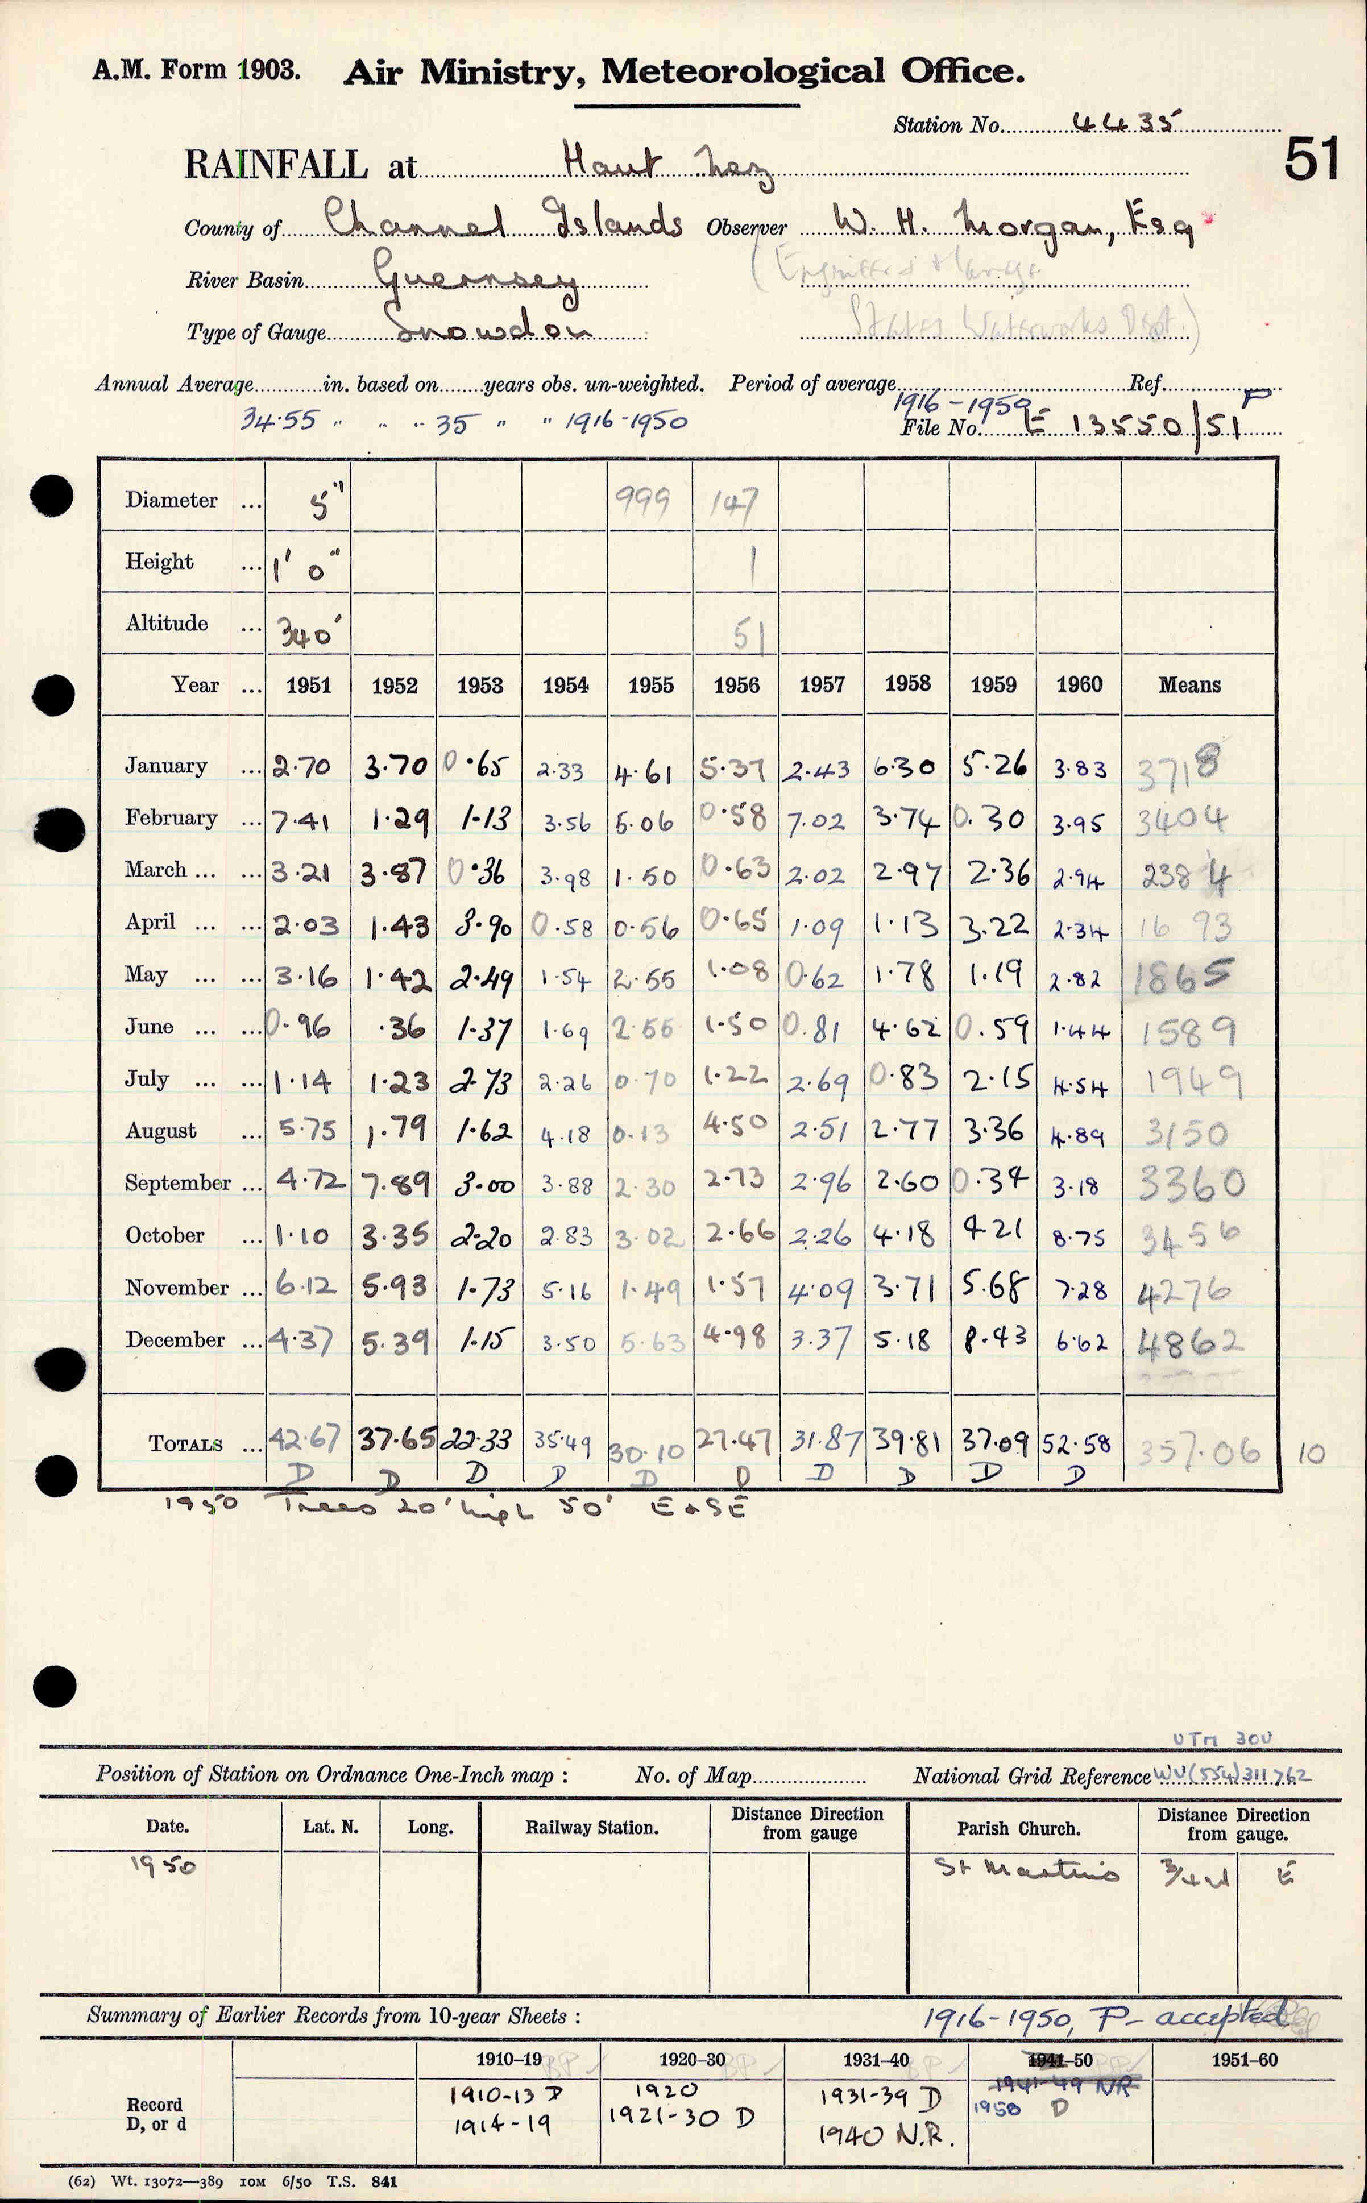 A.M. Form 1903. Air Ministry, Meteorological Office.
Station No. 4435
51
RAINFALL at Haut Nez
County of Channel Islands Observer W. H. Morgan, Esq
River Basin Guernsey (Engineer & Manager
Type of Gauge Snowdon States Waterworks Dept.)
Annual Average in. based on years obs. un-weighted. Period of average 1916-1950 Ref. P
34.55 " " " 35 " " 1916-1950 File No. E 13550/51
Diameter ... 5" 999 147
Height ... 1' 0" 1
Altitude ... 340' 51
Year ... 1951 1952 1953 1954 1955 1956 1957 1958 1959 1960 Means
January ... 2.70 3.70 0.65 2.33 4.61 5.37 2.43 6.30 5.26 3.83 3718
February ... 7.41 1.29 1.13 3.56 5.06 0.58 7.02 3.74 0.30 3.95 3404
March ... ... 3.21 3.87 0.36 3.98 1.50 0.63 2.02 2.97 2.36 2.94 2384
April ... ... 2.03 1.43 3.90 0.58 0.56 0.65 1.09 1.13 3.22 2.34 1693
May ... ... 3.16 1.42 2.49 1.54 2.55 1.08 0.62 1.78 1.19 2.82 1865
June ... ... 0.96 .36 1.37 1.69 2.55 1.50 0.81 4.62 0.59 1.44 1589
July ... ... 1.14 1.23 2.73 2.26 0.70 1.22 2.69 0.83 2.15 4.54 1949
August ... 5.75 1.79 1.62 4.18 0.13 4.50 2.51 2.77 3.36 4.89 3150
September ... 4.72 7.89 3.00 3.88 2.30 2.73 2.96 2.60 0.34 3.18 3360
October ... 1.10 3.35 2.20 2.83 3.02 2.66 2.26 4.18 4.21 8.75 3456
November ... 6.12 5.93 1.73 5.16 1.49 1.57 4.09 3.71 5.68 7.28 4276
December ... 4.37 5.39 1.15 3.50 5.63 4.98 3.37 5.18 8.43 6.62 4862
TOTALS ... 42.67 37.65 22.33 35.49 30.10 27.47 31.87 39.81 37.09 52.58 357.06 10
D D D D D D D D D D
1950 Trees 20' high 50' E & SE
UTM 30U
Position of Station on Ordnance One-Inch map : No. of Map National Grid Reference WV(554)311762
Date. Lat. N. Long. Railway Station. Distance Direction from gauge Parish Church. Distance Direction from gauge.
1950 St Martins 3/4 M E
Summary of Earlier Records from 10-year Sheets : 1916-1950, P- accepted
1910-19 1920-30 1931-40 1941-50 1951-60
Record D, or d
1910-13 D 1920 1931-39 D 1941-49 NR
1914-19 1921-30 D 1940 N.R. 1950 D
(62) Wt. 13072—389 10M 6/50 T.S. 841